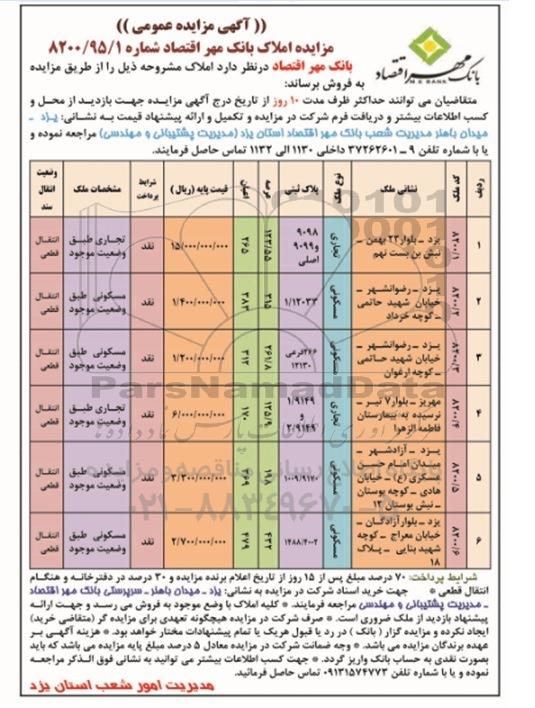 (( آگهی مزایده عمومی ))
مزایده املاک بانک مهر اقتصاد شماره ۸۲۰۰/۹۵/۱
بانک مهر اقتصاد درنظر دارد املاک مشروحه ذیل را از طریق مزایده
به فروش برساند:
بانک مهر اقتصاد
M.E BANK
متقاضیان می توانند حداکثر ظرف مدت ۱۰ روز از تاریخ درج آگهی مزایـده جهـت بازدیـد از محـل و
کسب اطلاعات بیشتر و دریافت فرم شرکت در مزایده و تکمیل و ارائه پیشنهاد قیمت بـه نشـانی: یـزد ـ
میدان باهنر مدیریت شعب بانک مهر اقتصاد استان یزد (مدیریت پشتیبانی و مهندسی) مراجعه نموده و
یا با شماره تلفن ۹ ـ ۳۷۲۶۲۶۰۱ داخلی ۱۱۳۰ الی ۱۱۳۲ تماس حاصل فرمایند.
ردیف کد ملک نشانی ملک نوع ملک پلاک ثبتی عرصه اعیان قیمت پایه (ریال) شرایط پرداخت مشخصات ملک وضعیت انتقال سند
۱ ۸۲۰۰/۱ یزد ـ بلوار ۲۲ بهمن ـ نبش بن بست نهم تجاری ۹۰۹۸ و ۹۰۹۹ اصلی ۲۶۵ ۱۵/۰۰۰/۰۰۰/۰۰۰ نقد تجاری طبـق وضعیت موجود انتقـال قطعی
۲ ۸۲۰۰/۲ یـزد ـ رضوانشـهر ـ خیابان شهید حاتمی ـ کوچه خرداد مسکونی ۱/۱۲۰۳۳ ۳۱۵ ۲۸۳ ۱/۴۰۰/۰۰۰/۰۰۰ نقد مسکونی طبق وضعیت موجود انتقـال قطعی
۳ ۸۲۰۰/۳ یـزد ـ رضوانشـهر ـ خیابان شهید حـاتمی ـ کوچه ارغوان مسکونی ۲۶۶فرعی ۱۳۱۳۰ ۲۶۱/۸ ۳۱۲ ۱/۲۰۰/۰۰۰/۰۰۰ نقد مسکونی طبق وضعیت موجود انتقـال قطعی
۴ ۸۲۰۰/۴ مهریز ـ بلوار۷ تیـر ـ نرسیده به بیمارستان فاطمه الزهرا تجاری ۱/۹۱۴۹ و ۲/۹۱۴۹ ۱۲۵/۹ ۱۷۰ ۶/۰۰۰/۰۰۰/۰۰۰ نقد تجاری طبـق وضعیت موجود انتقـال قطعی
۵ ۸۲۰۰/۵ یـزد ـ آزادشـهر ـ میـدان امـام حسـن عسکری (ع) ـ خیابان هادی ـ کوچه بوستان ـ نبش بوستان ۱۲ مسکونی ۱۹۸ ۲۶۹ ۳/۳۰۰/۰۰۰/۰۰۰ نقد مسکونی طبق وضعیت موجود انتقـال قطعی
۶ ۸۲۰۰/۶ یزد ـ بلوار آزادگـان ـ خیابان معراج ـ کوچه شهید بنایی ـ پـلاک ۱۸ مسکونی ۱۴۸۸/۴۰۰۲ ۴۳۲ ۴۷۹ ۲/۷۰۰/۰۰۰/۰۰۰ نقد مسکونی طبق وضعیت موجود انتقـال قطعی
ParsNamadData
۰۲۱-۸۸۳۴۹۶۷۰
شرایط پرداخت: ۷۰ درصد مبلغ پس از ۱۵ روز از تاریخ اعلام برنده مزایده و ۳۰ درصد در دفترخانـه و هنگـام
انتقال قطعی * جهت خرید اسناد شرکت در مزایده به نشانی: یزد ـ میدان باهنر ـ سرپرستی بانک مهر اقتصاد
ـ مدیریت پشتیبانی و مهندسی مراجعه فرمایند. * کلیه املاک با وضع موجود به فروش می رسـد و جهـت ارائـه
پیشنهاد بازدید از ملک ضروری است. * صرف شرکت در مزایده هیچگونه تعهدی برای مزایده گر (متقاضی خرید)
ایجاد نکرده و مزایده گزار ( بانک ) در رد یا قبول هریک یا تمام پیشنهادات مختار خواهد بود. * هزینه آگهـی بـر
عهده برندگان مزایده می باشد. * وجه ضمانت شرکت در مزایده معادل ۵ درصد مبلغ پایه مزایده می باشد که باید
بصورت نقدی به حساب بانک واریز گردد. * جهت کسب اطلاعات بیشتر می توانید به نشانی فوق الـذکر مراجعـه
نموده و یا با شماره تلفن ۰۹۱۳۱۵۷۴۷۷۳ تماس حاصل فرمائید.
مدیریت امور شعب استان یزد